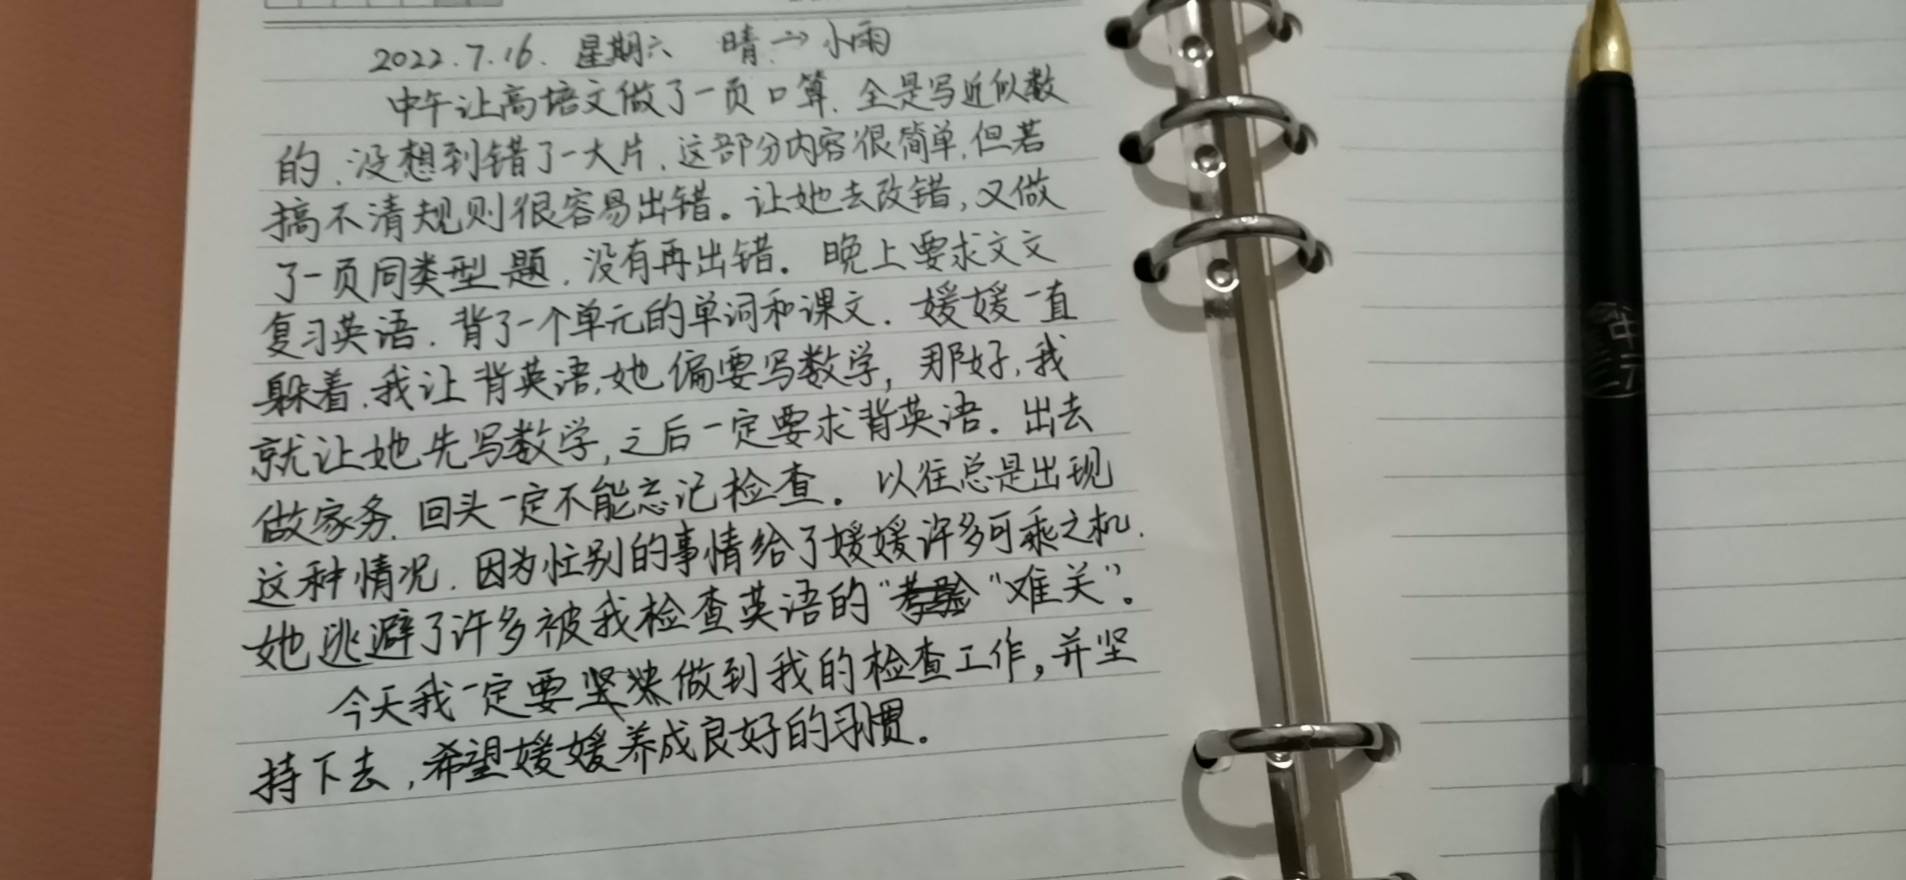 2022.7.16. 星期六 晴→小雨
中午让高培文做了一页口算.全是写近似数
的.没想到错了一大片.这部分内容很简单.但若
搞不清规则很容易出错。让她去改错,又做
了一页同类型题.没有再出错。晚上要求文文
复习英语.背了一个单元的单词和课文.媛媛一直
躲着.我让背英语.她偏要写数学,那好.我
就让她先写数学,之后一定要求背英语。出去
做家务.回头一定不能忘记检查。以往总是出现
这种情况.因为忙别的事情给了媛媛许多可乘之机.
她逃避了许多被我检查英语的“考验“难关”。
今天我一定要坚决做到我的检查工作。并坚
持下去,希望媛媛养成良好的习惯。